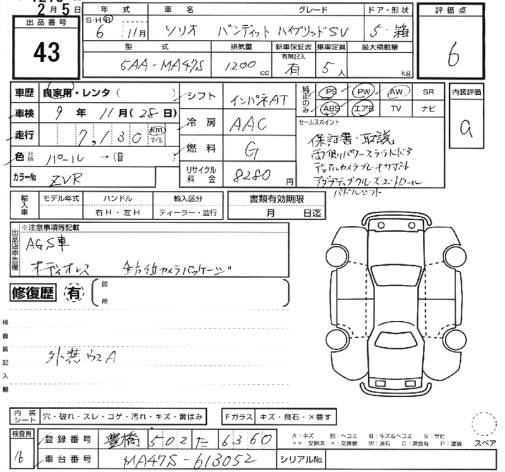 2月5日
出品番号
43
年式
車名
グレード
ドア・形状
S・H・R
6
11月
ソリオ
バンディット
ハイブリッドSV
5・箱
型式
排気量
新車保証書
有無記入
乗車定員
最大積載量
5AA-MA47S
1200
cc
有
5
人
kg
評価点
6
内装評価
車歴
自家用・レンタ
車検
9年11月(28日)
走行
7,130
km
マイル
色
パール
カラーNo
ZVR
シフト
インパネAT
冷房
AAC
燃料
G
リサイクル料金
8280円
純正のみ
PS
PW
AW
SR
ABS
エアB
TV
ナビ
セールスポイント
保証書・取説
両側パワースライドドア
デュアルカメラブレーキサポート
アダプティブクルーズコントロール
パドルシフト
輸入車
モデル年式
ハンドル
右H・左H
輸入区分
ディーラー・並行
書類有効期限
月
日迄
※注意事項等記載
出品店申告欄
AGS車
オーディオレス
全方位カメラパッケージ
修復歴
有
検査員記入欄
外装ウスA
内装シート
穴・破れ・スレ・コゲ・汚れ・キズ・黄ばみ
Fガラス
キズ・飛石・×要す
検査員
16
登録番号
豊橋
502
た
6360
車台番号
MA47S-613052
シリアルNo.
A:キズ
B:キズ&ヘコミ
S:サビ
P:塗装
スペア